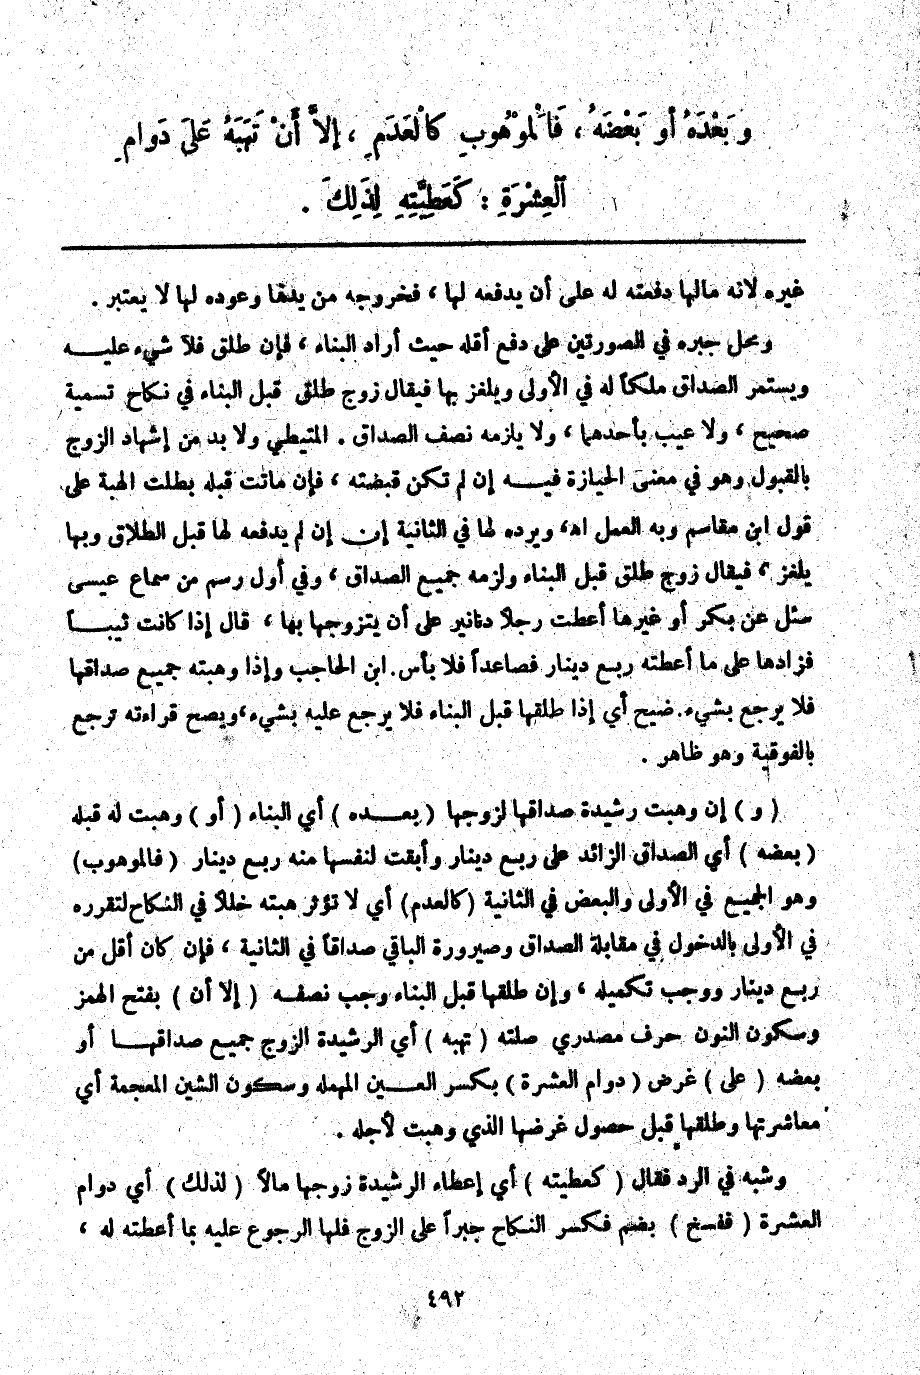 وَبَعْدَهُ أو بَعْضَهُ ، فَالْموْهُوبِ كالْعَدَمِ ، إلاَّ أَنْ تَهَبَهُ عَلَى دَوامِ
اَلْعِشْرَةِ : كَعَطِيَّتِهِ لِذَلِكَ .
غيره لانه مالها دفعته له على أن يدفعه لها ، فخروجه من يدها وعوده لها لا يعتبر .
ومحل جبره في الصورتين على دفع أقله حيث أراد البناء ، فإن طلق فلا شيء عليـــه
ويستمر الصداق ملكاً له في الأولى ويلغز بها فيقال زوج طلق قبل البناء في نكاح تسمية
صحيح ، ولا عيب بأحدهما ، ولا يلزمه نصف الصداق . المتيطي ولا بد من إشهاد الزوج
بالقبول وهو في معنى الحيازة فيـــه إن لم تكن قبضته ، فإن ماتت قبله بطلت الهبة على
قول ابن مقاسم وبه العمل اه‍ ، ويرده لها في الثانية إن إن لم يدفعه لها قبل الطلاق وبها
يلغز ، فيقال زوج طلق قبل البناء ولزمه جميع الصداق ، وفي أول رسم من سماع عيسى
سئل عن بكر أو غيرها أعطت رجلاً دنانير على أن يتزوجها بها ، قال إذا كانت ثيبـــاً
فزادها على ما أعطته ربع دينار فصاعداً فلا بأس . ابن الحاجب وإذا وهبته جميع صداقها
فلا يرجع بشيء . ضيح أي إذا طلقها قبل البناء فلا يرجع عليه بشيء ، ويصح قراءته ترجع
بالفوقية وهو ظاهر .
( و ) إن وهبت رشيدة صداقها لزوجها ( بعـــده ) أي البناء ( أو ) وهبت له قبله
( بعضه ) أي الصداق الزائد على ربع دينار وأبقت لنفسها منه ربع دينار ( فالموهوب )
وهو الجميع في الأولى والبعض في الثانية (كالعدم) أي لا تؤثر هبته خللاً في النكاح لتقرره
في الأولى بالدخول في مقابلة الصداق وصيرورة الباقي صداقاً في الثانية ، فإن كان أقل من
ربع دينار ووجب تكميله ، وإن طلقها قبل البناء وجب نصفـه ( إلا أن ) بفتح الهمز
وسكون النون حرف مصدري صلته ( تهبه ) أي الرشيدة الزوج جميع صداقهـــا أو
بعضه ( على ) غرض ( دوام العشرة ) بكسر العـــين المهمله وسكون الشين المعجمة أي
معاشرتها وطلقها قبل حصول غرضها الذي وهبت لأجله .
وشبه في الرد فقال ( كعطيته ) أي إعطاء الرشيدة زوجها مالاً ( لذلك ) أي دوام
العشرة ( ففسخ ) بضم فكسر النكاح جبراً على الزوج فلها الرجوع عليه بما أعطته له ،
٤٩٢